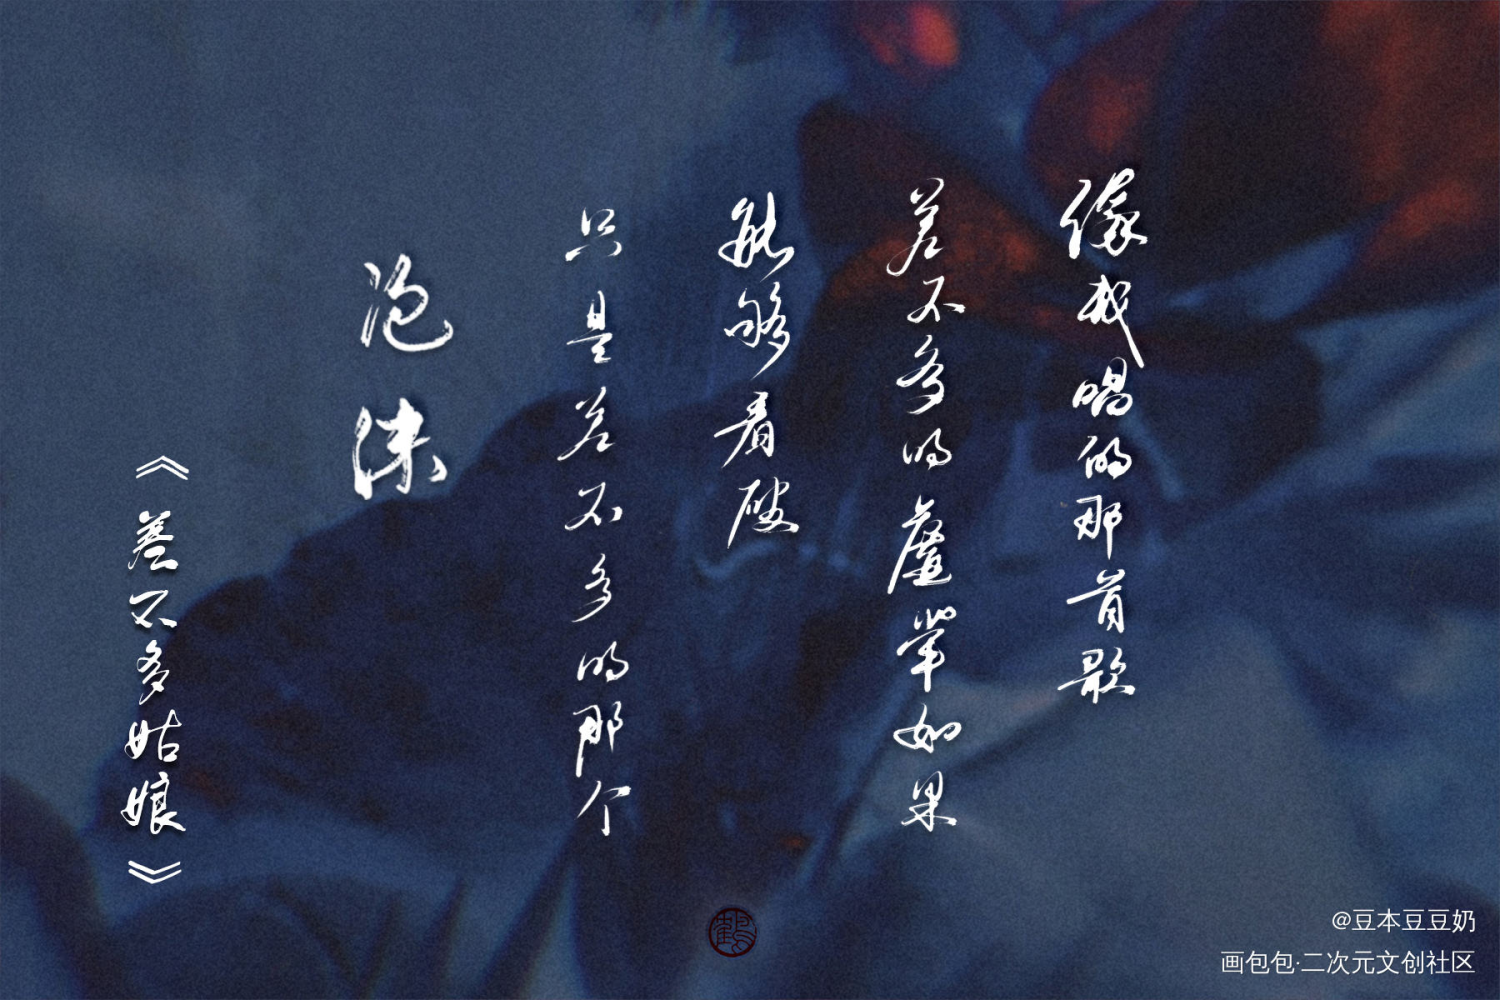 像我唱的那首歌
差不多的虚荣如果
能够看破
只是差不多的那个
泡沫
《差不多姑娘》
鹤
@豆本豆豆奶
画包包·二次元文创社区